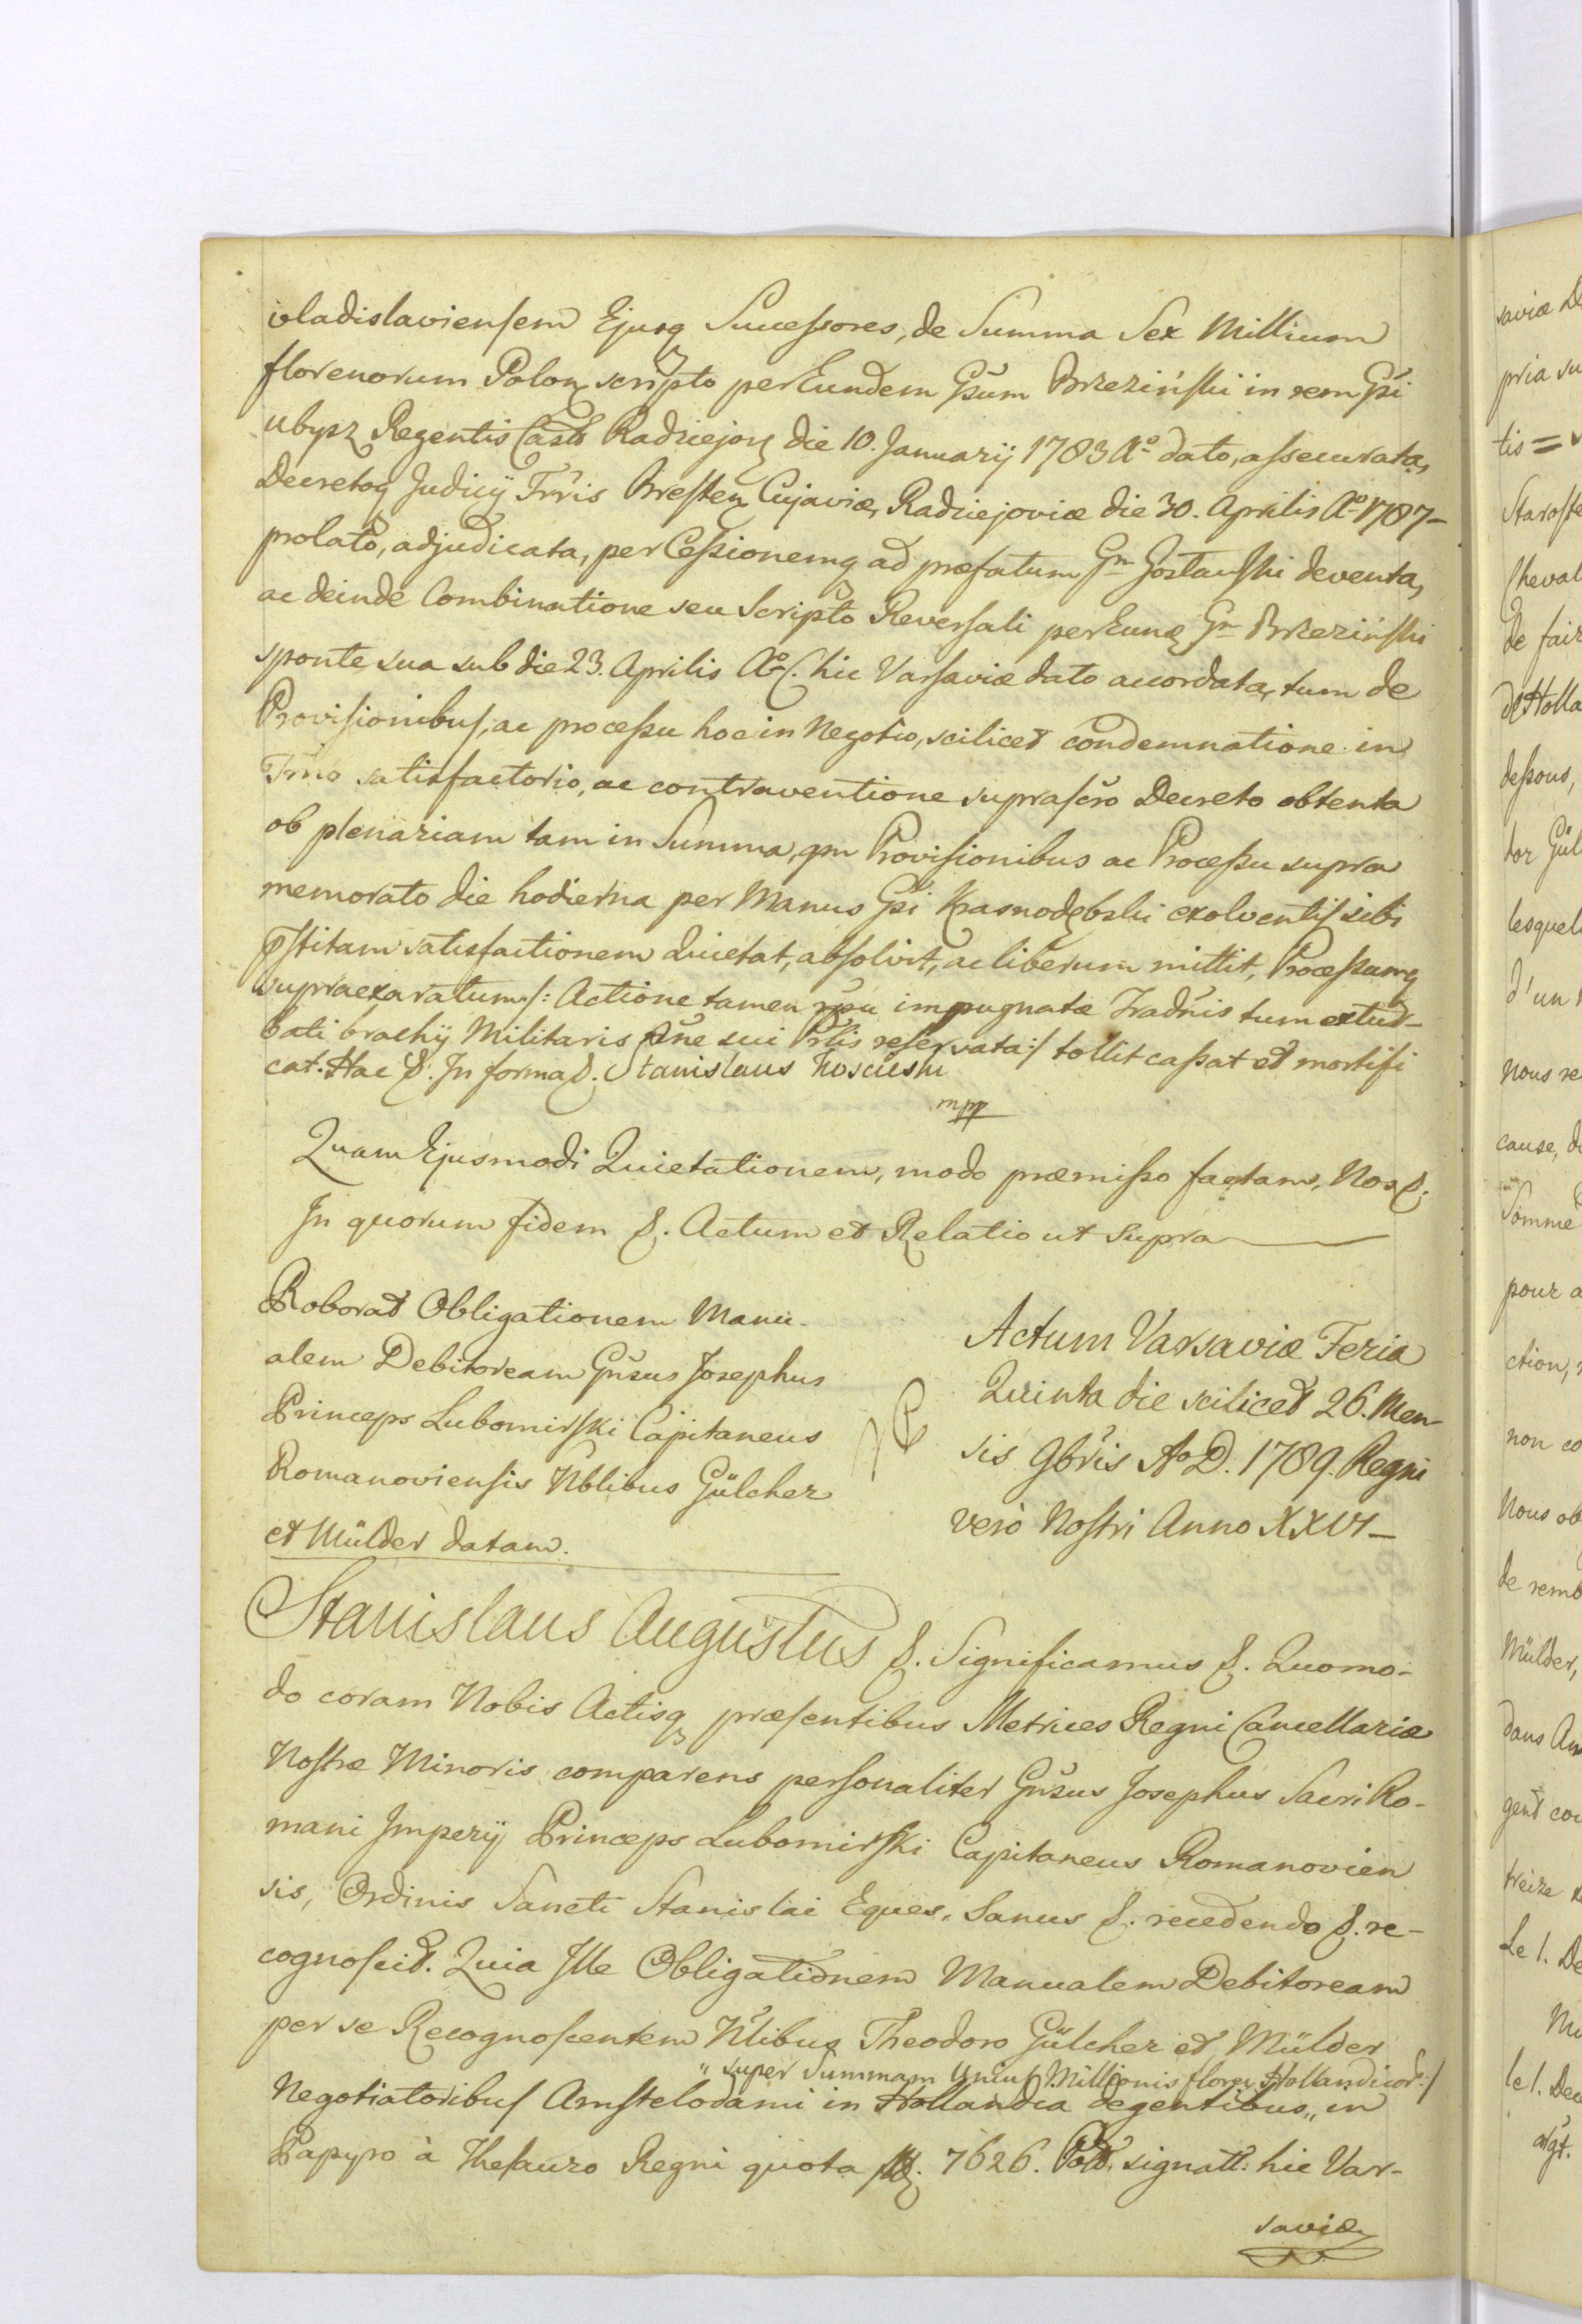 vladislaviensem Ejusq Successores, de Summa Sex Millium
florenorum Polon scripto per Eundem Gsum Brzezinski in rem Gsi
Ubysz Regentis Castr Radziejov die 10. Januarij 1783 Ao dato, assecurata,
Decretoq Judicij Trris Bresten Cujaviæ, Radziejoviæ die 30. Aprilis Ao 1787-
prolato, adjudicata, per Cessionemq ad præfatum Gm deventa,
ac deinde Combinatione seu Scripto Reversali per Eund Gm Brzezinski
sponte sua sub die 23. Aprilis Ao C. hic Varsaviæ dato accordata, tum de
Provisionibus, ac processu hoc in Negotio, scilicet condemnatione in
Trmo satisfactorio, ac contraventione suprascro Decreto obtenta
ob plenariam tam in Summa, qm Provisionibus ac Processu supra
memorato die hodierna per Manus Gsi Krasnodębski exolventis sibi
pstitam satisfactionem Quietat, absolvit, ac liberum mittit, Processumq
supraexaratum /: Actione tamen rõu impugnatæ Tradnis tum extur-
bati brachij Militaris sine sui reservata :/ tollit cassat et mortifi
cat. Hac &. In forma &. Stanislaus Kościeski
mpp
Quam Ejusmodi Quietationem, modo præmisso factam, Nos &.
In quorum fidem &. Actum et Relatio ut Supra
Roborat Obligationem Manu-
alem Debitoream Gnsus Josephus
Princeps Lubomirski Capitaneus
Romanoviensis Nblibus Gülcher
et Mülder datam.
Actum Varsaviæ Feria
Quinta die scilicet 26. Men-
sis 9bris Ao D. 1789. Regni
vero Nostri Anno XXVI-
Stanislaus Augustus &. Significamus &. Quomo-
do coram Nobis Actisq præsentibus Metrices Regni Cancellariæ
Nostræ Minoris comparens personaliter Gnsus Josephus Sacri Ro-
mani Imperij Princeps Lubomirski Capitaneus Romanovien
sis, Ordinis Sancti Stanislai Eques, Sanus &. recedendo &. re-
cognoscit. Quia Ille Obligationem Manualem Debitoream
per se Recognoscentem Nlibus Theodoro Gülcher et Mülder
"super Summam Unius Millionis floren Hollandicor :/
Negotiatoribus Amstelodami in Hollandia degentibus" in
Papyro à Thesauro Regni quota 7626. signatt: hic Var-
saviæ